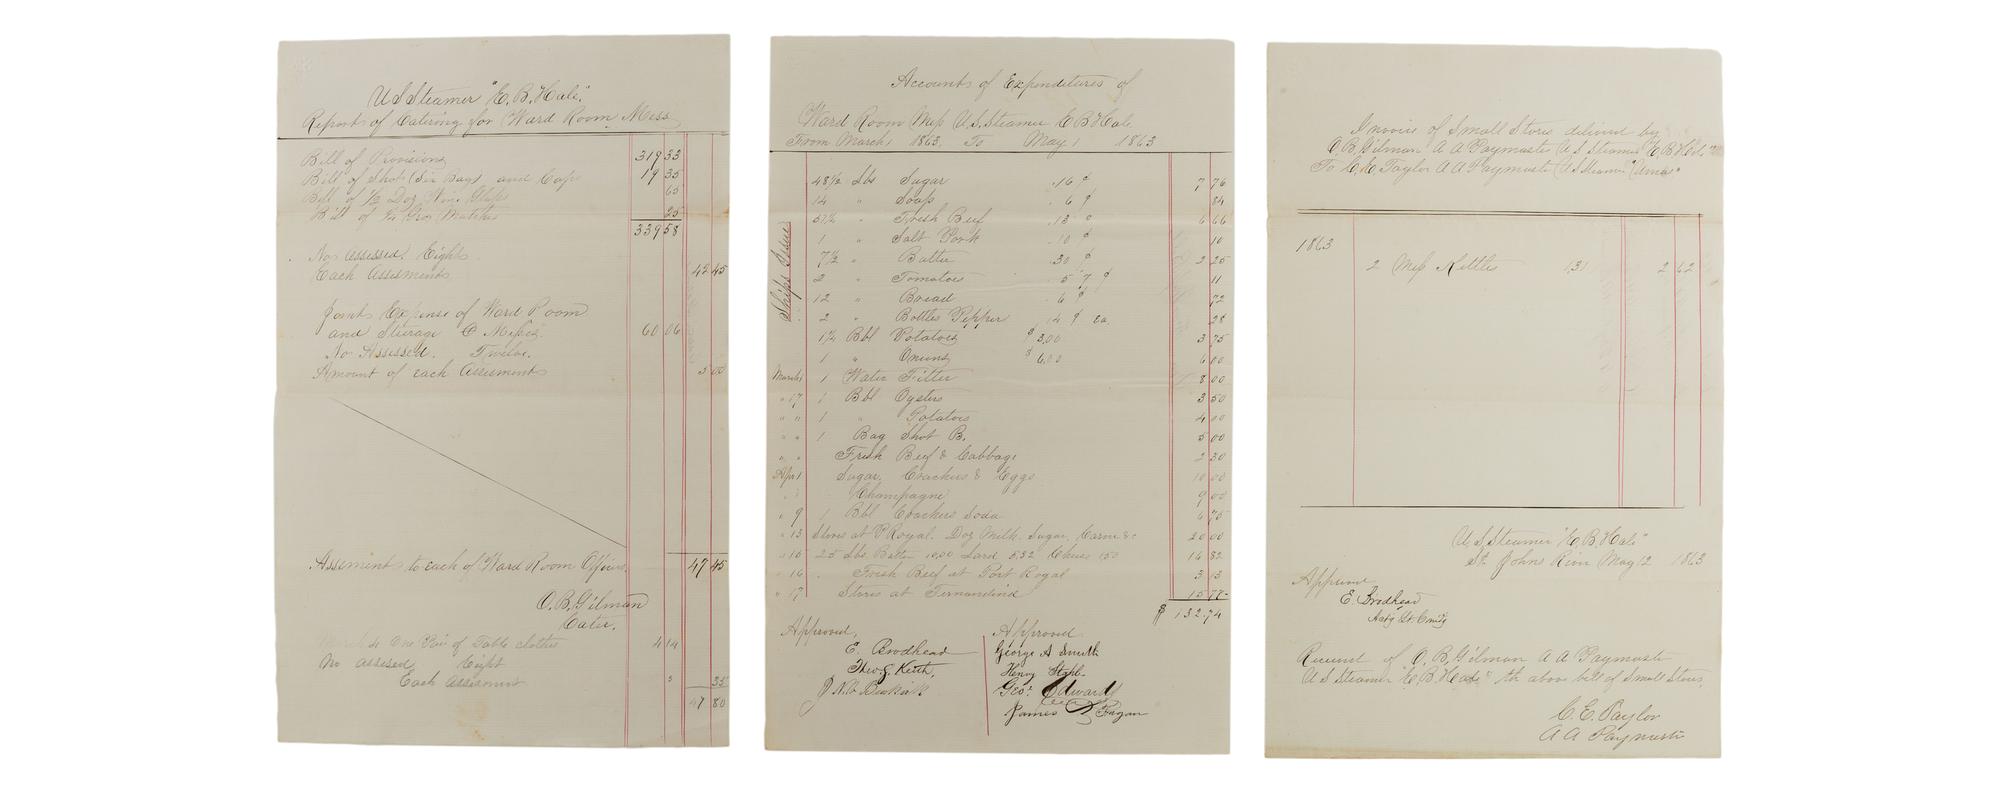 U S Steamer "E. B. Hale".
Reports of Catering for Ward Room Mess
Bill of Provisions 319 33
Bill of Shot (Six Bags) and Caps 19 35
Bill of 1/2 Doz Wine Glasses 65
Bill of 1/4 Gros Matches 25
339 58
No. Assessed. Eight.
Each Assesment 42 45
Joint Expense of Ward Room
and Steerage C Messes. 60 06
No Assessed. Twelve.
Amount of each Assesment 5 00
Assesment to each of Ward Room Officers. 47 45
O. B. Gilman
Cater.
March 4 One Pair of Table clothes 4 14
No assesed Eight
Each assesment 35
47 80
Accounts of Expenditures of
Ward Room Mess U.S. Steamer E B Hale
From March 1 1863, To May 1 1863
Ships Issue
48 1/2 Lbs Sugar .16 ¢ 7 76
14 " Soap .6 ¢ 84
" Fresh Beef .13 " 6 66
1 " Salt Pork .10 ¢ 10
7 1/2 " Butter .30 ¢ 2 25
2 " Tomatoes 5 ¢ 11
12 " Bread .6 ¢ 72
2 " Bottles Pepper 14 ¢ ea 28
1 1/4 Bbl Potatoes $ 3,00 3 75
1 " Onions $ 6,00 6 00
March 1 1 Water Filter 8 00
" 17 1 Bbl Oysters 3 50
" " 1 " Potatoes 4 00
" " 1 Bag Shot B. 5 00
" " Fresh Beef & Cabbage 2 30
Apr 1 Sugar, Crackers & Eggs 10 00
" " Champagne 9 00
" 9 1 Bbl Crackers Soda 6 75
" 13 Stores at P Royal. Doz Milk, Sugar, Corn &c 20 00
" 15 25 Lbs Butter 10,00 Lard 5,32 Cheese 1 50 16 82
" 16 Fresh Beef at Port Royal 3 13
" 17 Stores at Fernandina 15 77
$ 132.74
Approved,
E. Brodhead
Theo. G. Keith,
Approved
George A Smith
Henry
Geo. Edwards
James Fagan
Invoice of Small Stores delivered by
O. B. Gilman A A Paymaster U S Steamer "E, B Hale"
To C, E Taylor A A Paymaster U S Steamer "Uma"
1863
2 Mess Kettles 1,31 2 62
U, S, Steamer "E, B, Hale"
St Johns River May 12 1863
Approved
E. Brodhead
Actg Lt. Comg
Received of O. B. Gilman A A Paymaster
U S Steamer "E, B Hale" th above bill of Small Stores,
C. E. Taylor
A A Paymaster